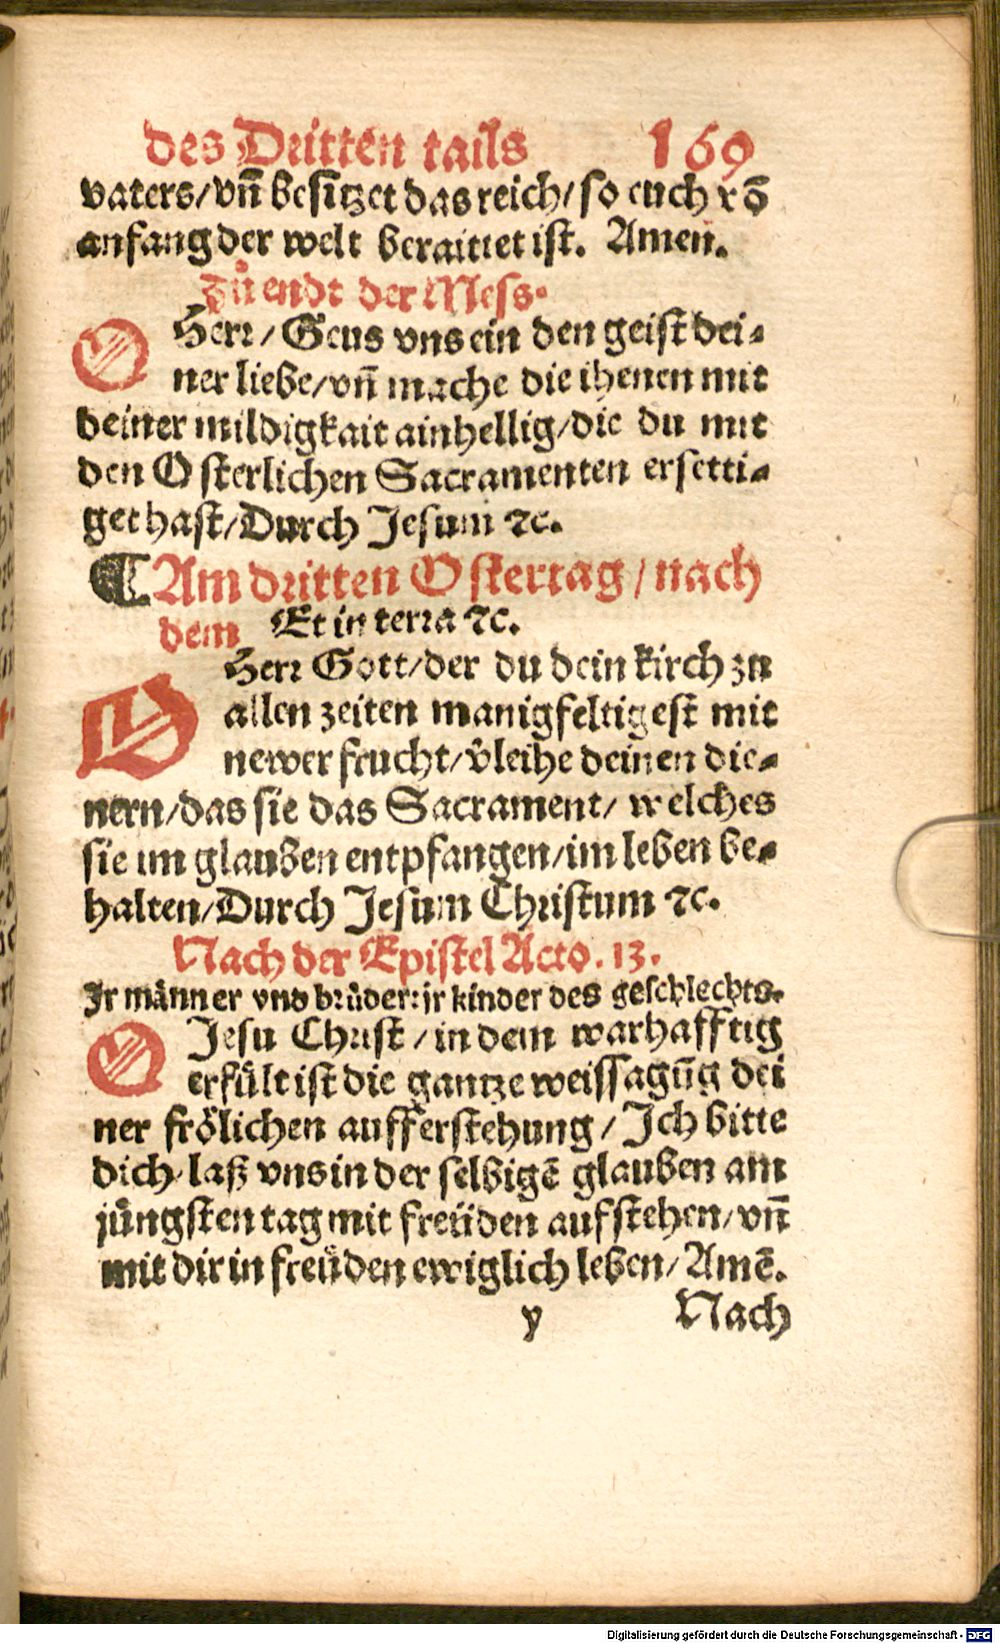 des Dritten tails 169
vaters/vñ besitzet das reich/so euch võ
anfang der welt beraittet ist. Amen.
Zů endt der Mess.
O Herr/Geus vns ein den geist dei-
ner liebe/vñ mache die ihenen mit
deiner mildigkait ainhellig/die du mit
den Osterlichen Sacramenten ersetti-
get hast/Durch Jesum ⁊c.
¶ Am dritten Ostertag/nach
dem Et in terra ⁊c.
O Herr Gott/der du dein kirch zu
allen zeiten manigfeltigest mit
newer frucht/v̂leihe deinen die-
nern/das sie das Sacrament/welches
sie im glauben entpfangen/im leben be-
halten/Durch Jesum Christum ⁊c.
Nach der Epistel Acto. 13.
Jr männer vnd brüder: jr kinder des geschlechts.
O Jesu Christ/in dem warhafftig
erfült ist die gantze weissagũg dei
ner frölichen aufferstehung/Jch bitte
dich/laß vns in der selbigẽ glauben am
jüngsten tag mit freüden aufstehen/vñ
mit dir in freüden ewiglich leben/Amẽ.
y Nach
Digitalisierung gefördert durch die Deutsche Forschungsgemeinschaft - DFG